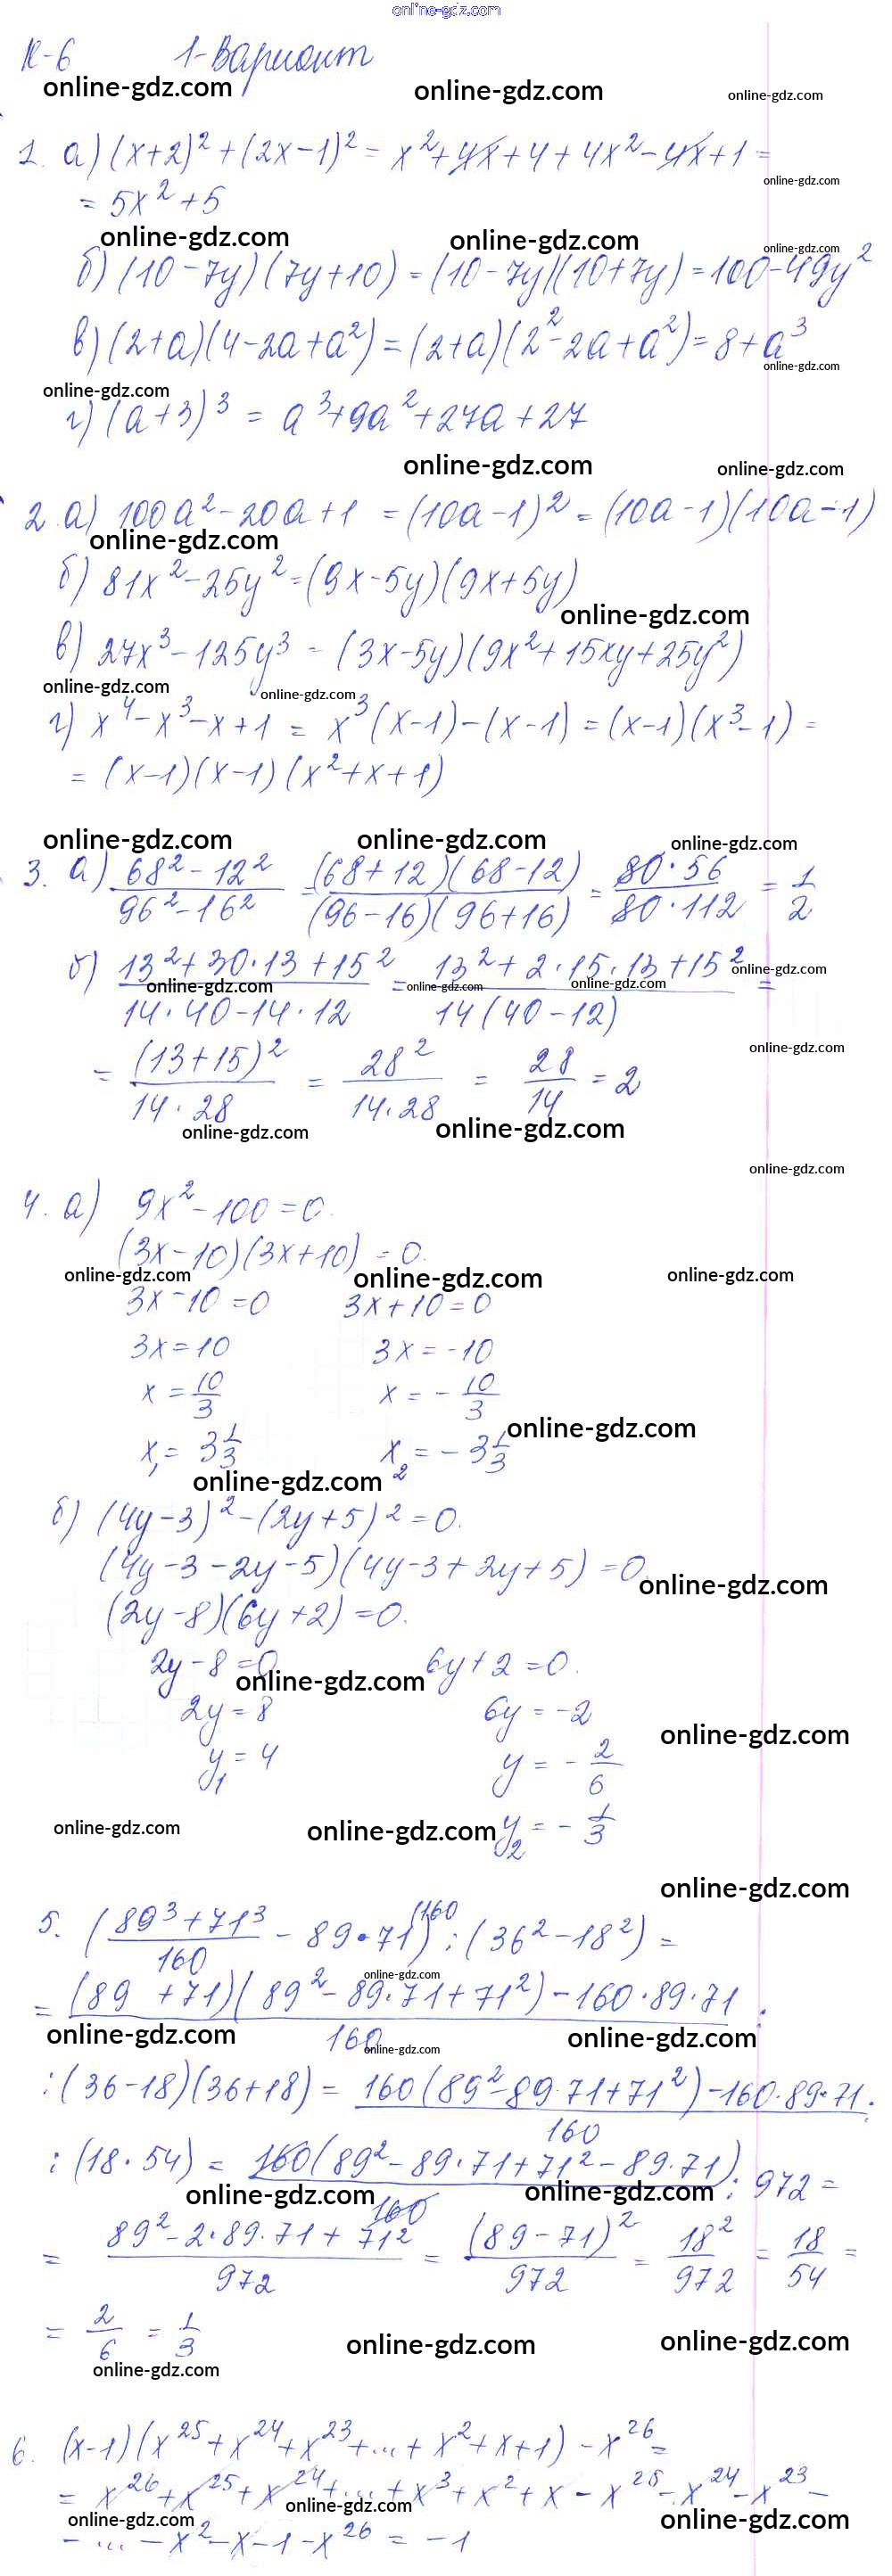 online-gdz.com
К-6 1-Вариант
online-gdz.com online-gdz.com online-gdz.com
1. а) (x+2)² + (2x-1)² = x² + 4x + 4 + 4x² - 4x + 1 =
online-gdz.com
= 5x² + 5
online-gdz.com online-gdz.com online-gdz.com
б) (10 - 7y)(7y+10) = (10-7y)(10+7y) = 100-49y²
в) (2+a)(4-2a+a²) = (2+a)(2²-2a+a²) = 8+a³
online-gdz.com online-gdz.com
г) (a+3)³ = a³+9a²+27a+27
online-gdz.com online-gdz.com
2. а) 100a²-20a+1 = (10a-1)² = (10a-1)(10a-1)
online-gdz.com
б) 81x²-25y² = (9x-5y)(9x+5y)
online-gdz.com
в) 27x³-125y³ = (3x-5y)(9x²+15xy+25y²)
online-gdz.com online-gdz.com
г) x⁴-x³-x+1 = x³(x-1)-(x-1) = (x-1)(x³-1) =
= (x-1)(x-1)(x²+x+1)
online-gdz.com online-gdz.com online-gdz.com
3. а) (68²-12²)/(96²-16²) = ((68+12)(68-12))/((96-16)(96+16)) = (80·56)/(80·112) = 1/2
б) (13²+30·13+15²)/(14·40-14·12) = (13²+2·15·13+15²)/(14(40-12)) =
online-gdz.com online-gdz.com online-gdz.com online-gdz.com
online-gdz.com
= (13+15)²/(14·28) = 28²/(14·28) = 28/14 = 2
online-gdz.com online-gdz.com
online-gdz.com
4. а) 9x²-100=0.
(3x-10)(3x+10) = 0.
online-gdz.com online-gdz.com online-gdz.com
3x-10=0 3x+10=0
3x=10 3x=-10
x = 10/3 x = -10/3
online-gdz.com
x₁ = 3 1/3 x₂ = -3 1/3
online-gdz.com
б) (4y-3)²-(2y+5)²=0.
(4y-3-2y-5)(4y-3+2y+5) = 0.
online-gdz.com
(2y-8)(6y+2)=0.
2y-8=0 6y+2=0.
online-gdz.com
2y=8 6y=-2
online-gdz.com
y₁=4 y = -2/6
online-gdz.com online-gdz.com y₂ = -1/3
online-gdz.com
5. ((89³+71³)/160 - 89·71)^(160 : (36²-18²) =
online-gdz.com
= ((89 +71)(89²-89·71+71²)-160·89·71)/160 :
online-gdz.com online-gdz.com online-gdz.com
:(36-18)(36+18) = (160(89²-89·71+71²)-160·89·71)/160 :
: (18·54) = (160(89²-89·71+71²-89·71))/160 : 972 =
online-gdz.com online-gdz.com
= (89²-2·89·71+71²)/972 = (89-71)²/972 = 18²/972 = 18/54 =
= 2/6 = 1/3
online-gdz.com online-gdz.com
online-gdz.com
6. (x-1)(x²⁵+x²⁴+x²³+...+x²+x+1)-x²⁶=
= x²⁶+x²⁵+x²⁴+...+x³+x²+x-x²⁵-x²⁴-x²³-
online-gdz.com online-gdz.com online-gdz.com
-...-x²-x-1-x²⁶ = -1